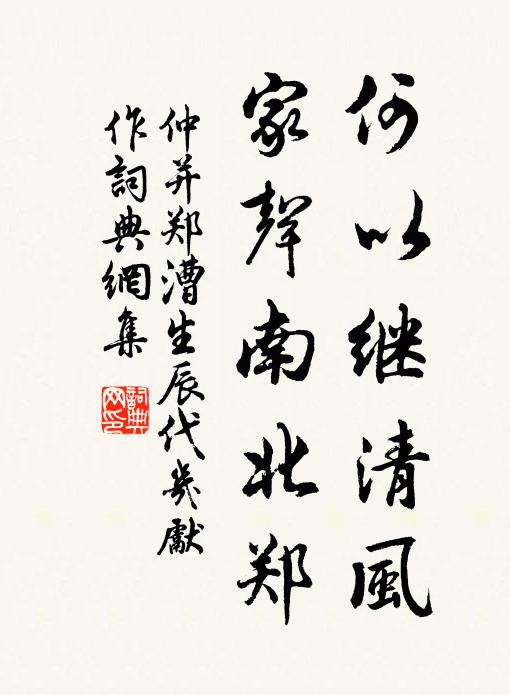 何以继清風
家聲南北郑
仲并郑漕生辰代岁獻
作詞典網集
詞典
网印